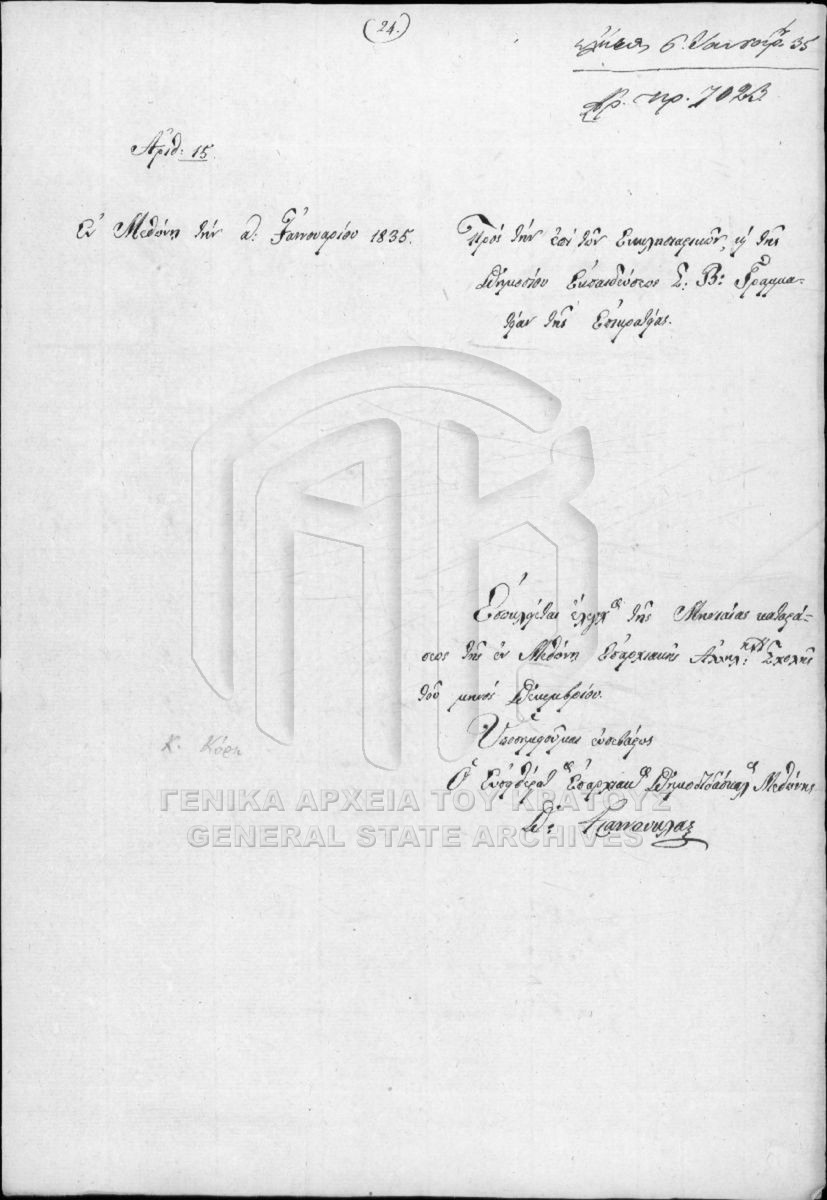 (24.)
6 Ἰαννουαρ. 35
Ἀρ. πρ. 7023
Ἀριθ: 15.
Ἐν Μεθώνῃ τὴν α: Ἰαννουαρίου 1835.
Πρὸς τὴν ἐπὶ τῶν Ἐκκλησιαστικῶν, καὶ τῆς
Δημοσίου Ἐκπαιδεύσεως Σ: Β: Γραμμα-
τείαν τῆς Ἐπικρατείας.
Ἐσωκλείεται ἔλεγχος τῆς Μηνιαίας καταστά-
σεως τῆς ἐν Μεθώνῃ Ἐπαρχιακῆς Ἀλληλ: Σχολῆς
τοῦ μηνὸς Δεκεμβρίου.
Ὑποσημειοῦμαι εὐσεβάστως
Ὁ Εὐπειθέστατος Ἐπαρχιακὸς Δημοδιδάσκαλος Μεθώνης
Κ. Κόρη
ΓΕΝΙΚΑ ΑΡΧΕΙΑ ΤΟΥ ΚΡΑΤΟΥΣ
GENERAL STATE ARCHIVES